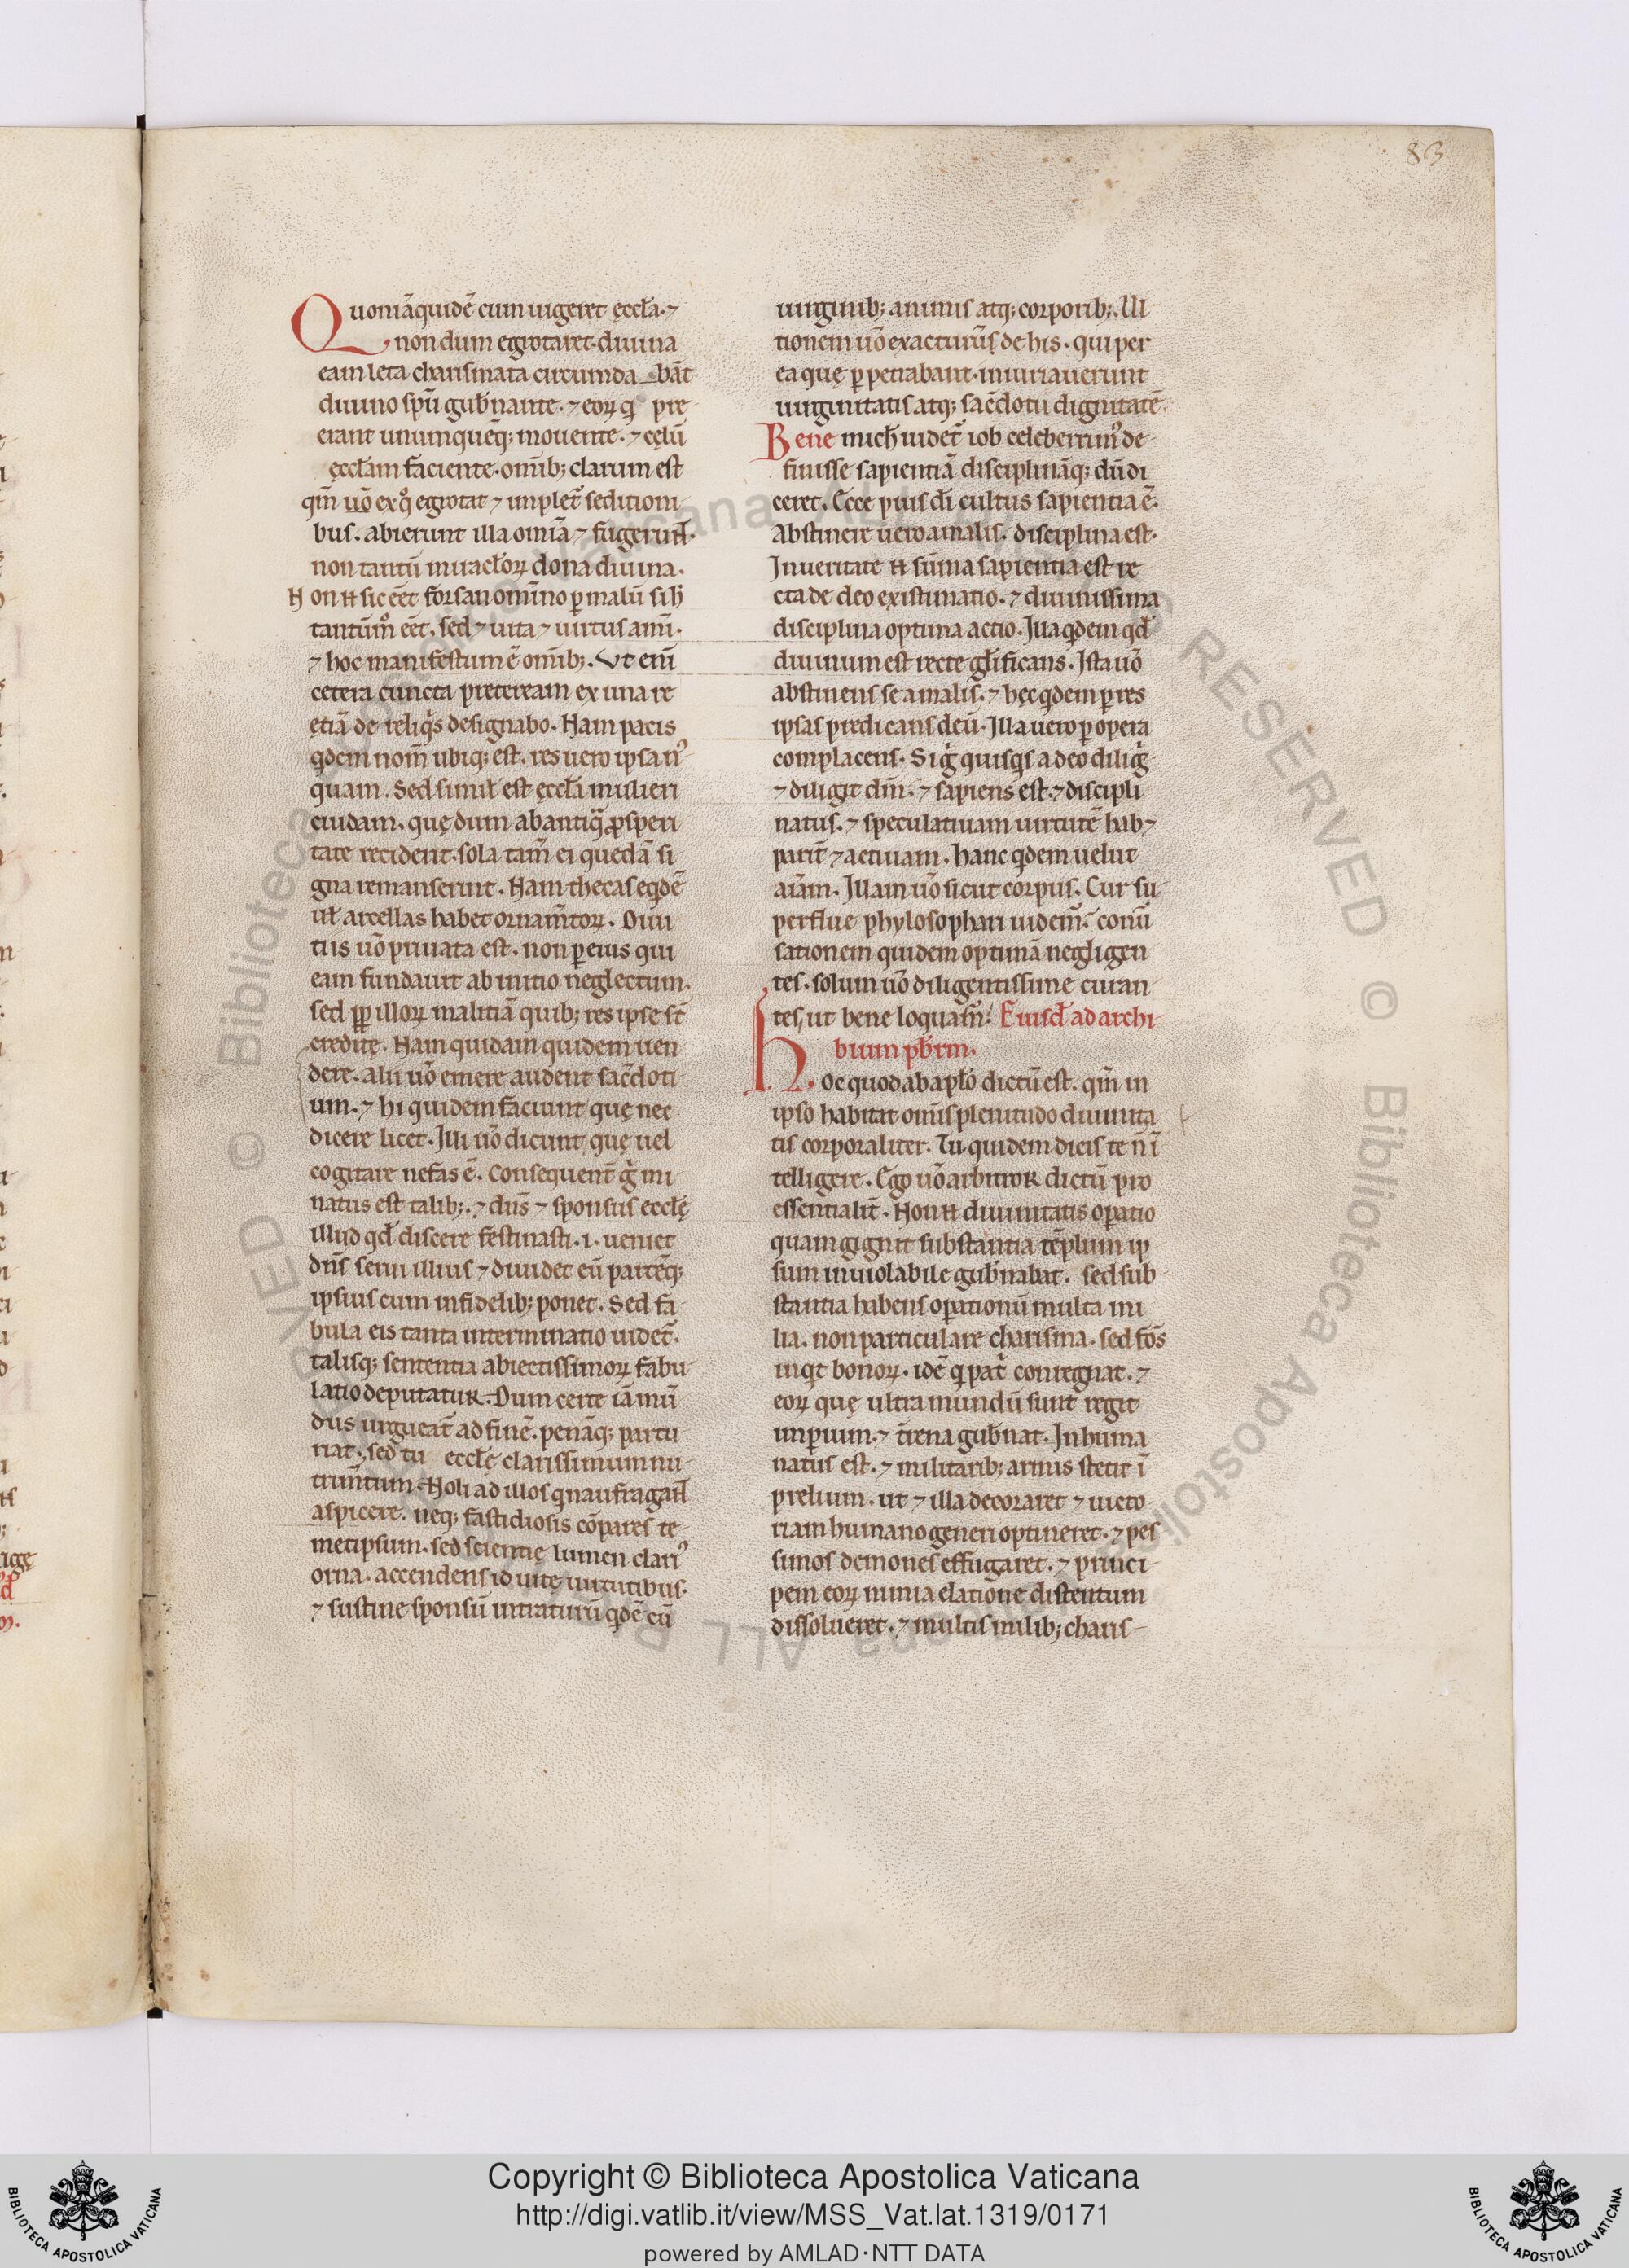 83
Quoniā quidē cum uigeret ęccła. ⁊
non dum egrotaret. diuina
eam leta charismata circumda_bāt
diuino spū gub̄nante. ⁊ eoꝝ q̇ pre
erant unumquēq; mouente. ⁊ cęlū
ęccłam faciente. omīb; clarum est
qm̄ uō ex qͦ egrotat ⁊ implet᷑ seditioni
bus. abierunt illa omīa ⁊ fugerunt.
non tantū miracłoꝝ dona diuina.
Non .n. sic eēt forsan omīno ꝑ malū sib
tantūmͦ eēt. sed ⁊ uita ⁊ uirtus anīi.
⁊ hoc manifestum ē omīb;. Vt enī
cetera cuncta preteream ex una re
ętiā de reliq̇s designabo. Nam pacis
q̇dem nom̄ ubiq; est. res uero ipsa nꝰ
quam. Sed simił est ęccła mulieri
cuidam. quę dum ab antiqᷓ ꝓsperi
tate reciderit. sola tam̄ ei quedā si
gna remanserint. Nam thecas eq̇dē
uł arcellas habet ornam̄toꝝ. Diui
tiis uō priuata est. non ꝑ eius qui
eam fundauit ab initio neglectum.
sed ꝓp illoꝝ malitiā quib; res ipse st̄
credite. Nam quidam quidem uen
dere. alii uō emere audent sac̄doti
um. ⁊ hi quidem faciunt quę nec
dicere licet. Illi uō dicunt quę uel
cogitare nefas ē. Consequent̄ g̊ mi
natus est talib;. ⁊ dn̄s ⁊ sponsus eccłę
illud qd̄ discere festinasti. .i. ueniet
dn̄s serui illius ⁊ diuidet eū partēq;
ipsius cum infidelib; ponet. Sed fa
bula eis tanta interminatio uidet᷑.
talisq; sententia abiectissimoꝝ fabu
latio deputatur. Dum certe iā mū
dus urgueat᷑ ad finē. penāq; partu
riat. sed tu eccłę clarissimum nu
trim̄tum. Noli ad illos q̇ naufragant
aspicere. neq; fastidiosis cōpares te
metipsum. sed scientię lumen clariꝰ
orna. accendens id uitę uirtutibus.
⁊ sustine sponsū intraturū q̇dē cū
uirginib; animis atq; corporib;. Vl
tionem uō exacturūs de his. qui per
ea quę ꝑpetrabant. iniuriauerunt
uirginitatis atq; sac̄dotii dignitatē.
Bene mich̄ uidet᷑ iob celeberrimꝰ de
finisse sapientiā disciplināq; dū di
ceret. Ecce pius dī cultus sapientia ē.
Abstinere uero a malis. disciplina est.
In ueritate .n. sūma sapientia est re
cta de deo existimatio. ⁊ diuinissima
disciplina optima actio. Illa q̇dem qd̄
diuinum est recte gl̄ificans. Ista uō
abstinens se a malis. ⁊ hęc q̇dem ꝑ res
ipsas predicans deū. Illa uero ꝑ opera
complacens. Si g̊ quisq̇s a deo dilig̊
⁊ diligit dm̄. ⁊ sapiens est. ⁊ discipli
natus. ⁊ speculatiuam uirtutē hab ⁊
parit᷑ ⁊ actiuam. hanc q̇dem uelut
aīam. Illam uō sicut corpus. Cur su
perflue phylosophari uidem̄. conū
sationem quidem optimā negligen
tes. solum uō diligentissime curan
tes ut bene loquam̄. Eiusd̄ ad archi
bium pb̄rm.
Hoc quod ab apło dictū est. qm̄ in
ipso habitat omīs plenitudo diuinita
tis corporaliter. Tu quidem dicis te n̄ ī
telligere. Ego uō arbitror dictū pro
essentialit᷑. Non .n. diuinitatis oꝑatio
quam gignit substantia tēplum ip
sum inuiolabile gub̄nabat. sed sub
stantia habens oꝑationū multa mi
lia. non particulare charisma. sed fōs
inq̇t bonoꝝ. idē q̇ pat᷑ conregnat. ⁊
eoꝝ quę ultra mundū sunt regit
imꝑium. ⁊ t᷑rena gub̄nat. Inhuma
natus est. ⁊ militarib; armis stetit ī
prelium. ut ⁊ illa decoraret ⁊ uicto
riam humano generi optineret. ⁊ pes
simos demones effugaret. ⁊ princi
pem eoꝝ nimia elatione distentum
dissolueret. ⁊ multis milib; charis
Copyright © Biblioteca Apostolica Vaticana
http://digi.vatlib.it/view/MSS_Vat.lat.1319/0171
powered by AMLAD·NTT DATA
BIBLIOTECA APOSTOLICA VATICANA
BIBLIOTECA APOSTOLICA VATICANA